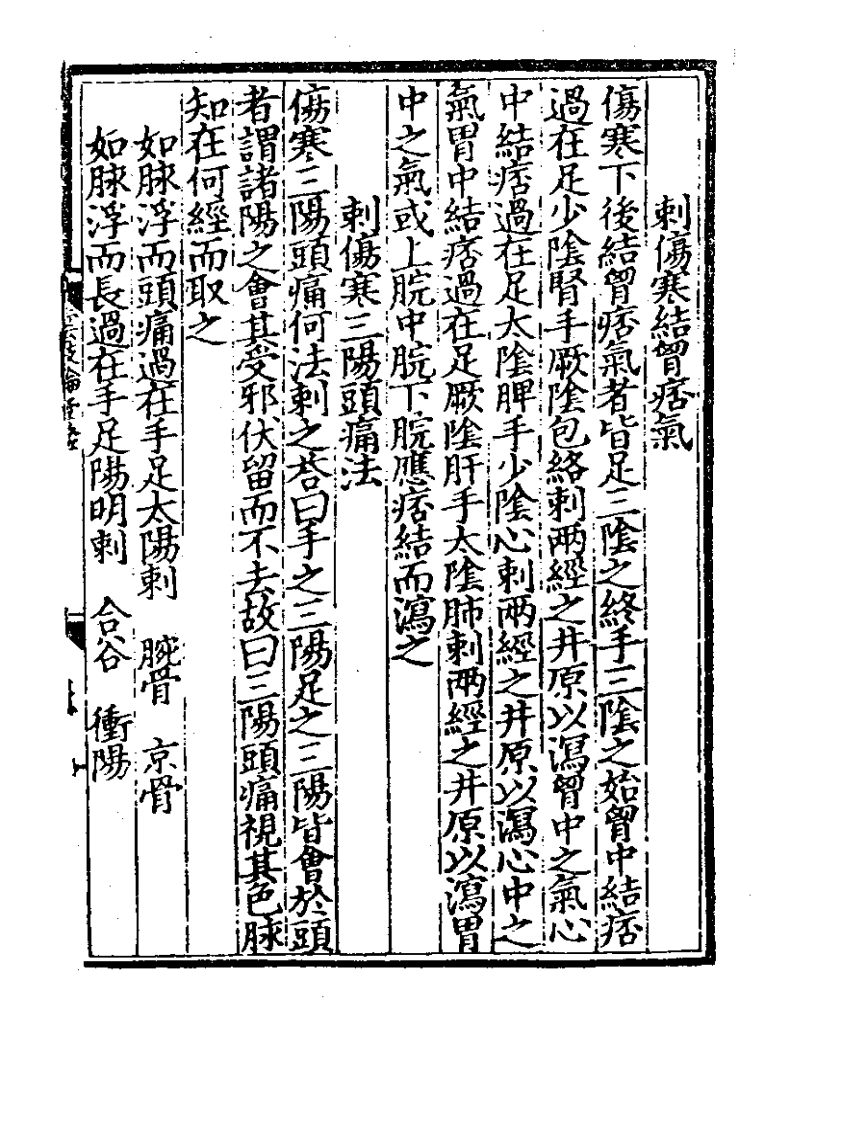 刺傷寒結胷痞氣
傷寒下後結胷痞氣者皆足三隂之終手三隂之始胷中結痞
過在足少隂腎手厥隂包絡刺兩經之井原以瀉胷中之氣心
中結痞過在足太隂脾手少隂心刺兩經之井原以瀉心中之
氣胃中結痞過在足厥隂肝手太隂肺刺兩經之井原以瀉胃
中之氣或上脘中脘下脘應痞結而瀉之
刺傷寒三陽頭痛法
傷寒三陽頭痛何法刺之荅曰手之三陽足之三陽皆會於頭
者謂諸陽之會其受邪伏留而不去故曰三陽頭痛視其色脉
知在何經而取之
如脉浮而頭痛過在手足太陽刺　腕骨　京骨
如脉浮而長過在手足陽明刺　合谷　衝陽